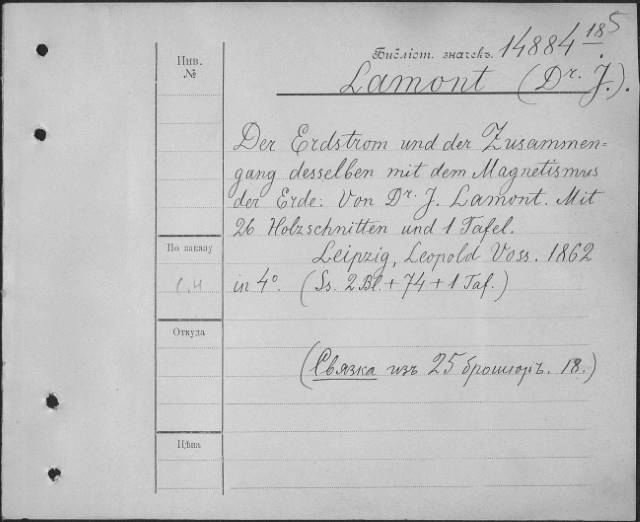 Инв.
№
Библіот. значекъ. 14884 18/5
Lamont (Dr. J.).
Der Erdstrom und der Zusammen=
gang desselben mit dem Magnetismus
der Erde. Von Dr. J. Lamont. Mit
26 Holzschnitten und 1 Tafel.
Leipzig, Leopold Voss. 1862
По заказу
in 4°. (Ss. 2 Bl. + 74 + 1 Taf.)
Откуда
(Связка изъ 25 брошюръ. 18.)
Цѣна